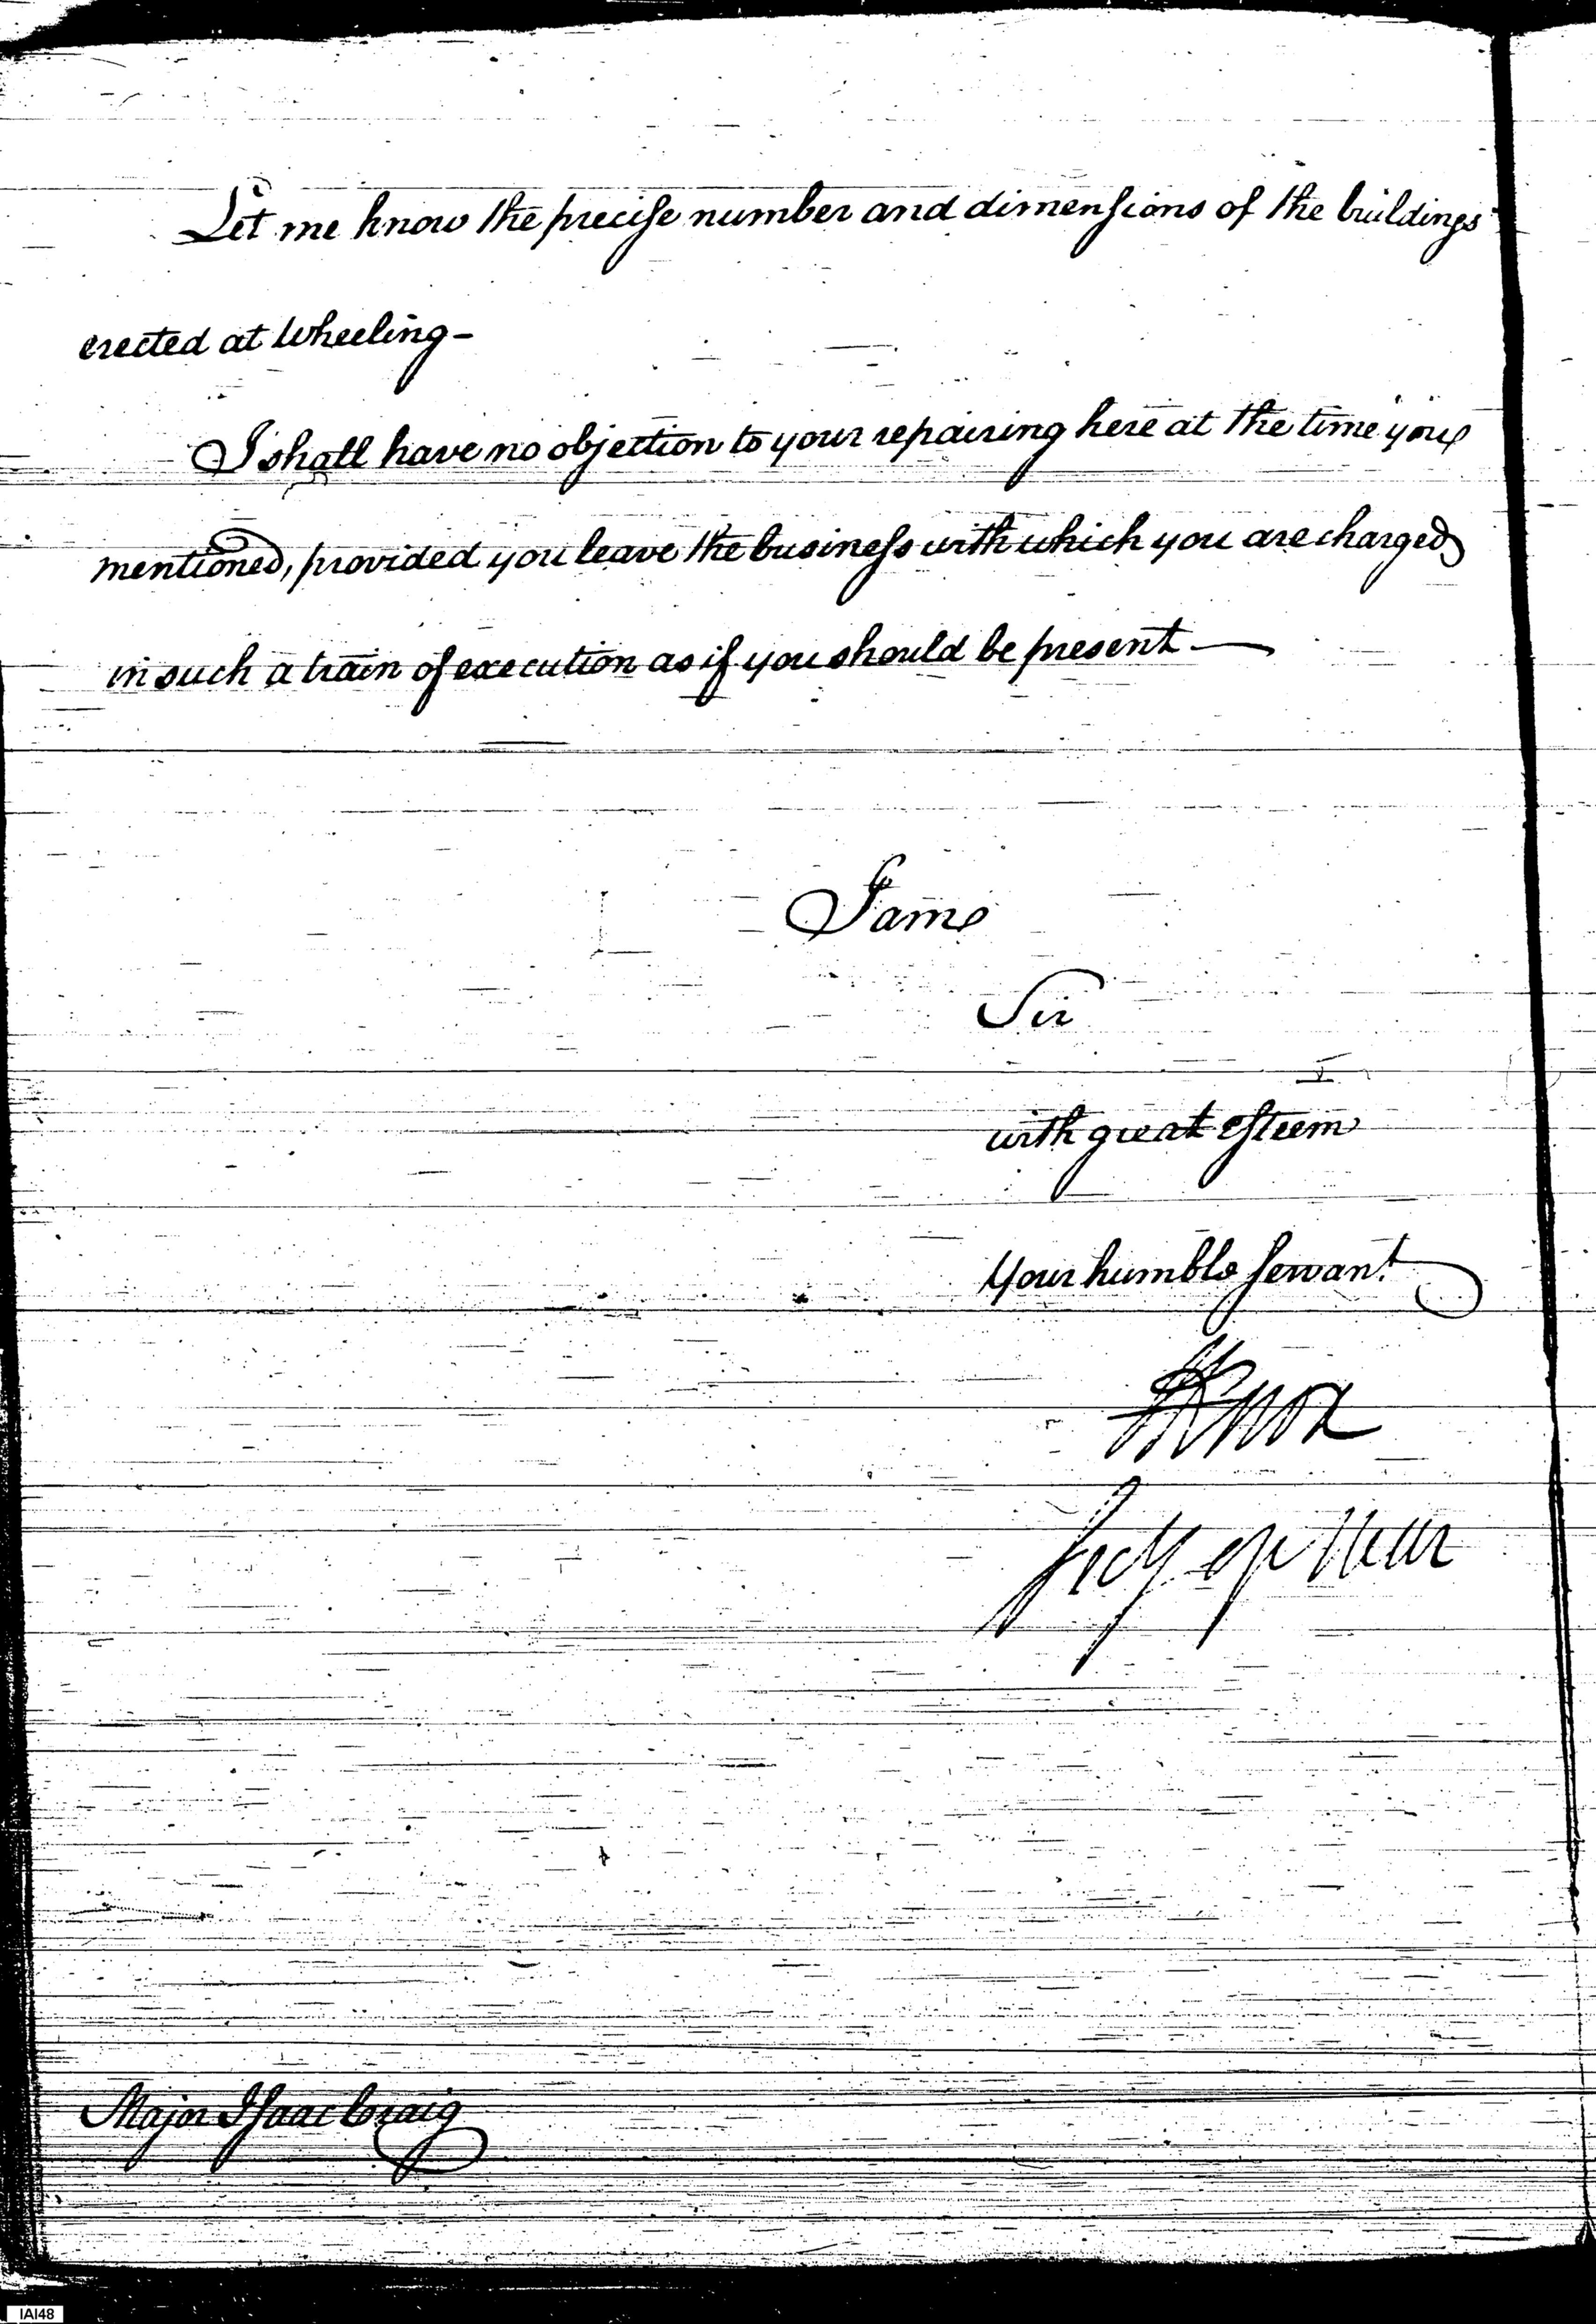 Let me know the precise number and dimensions of the buildings
erected at Wheeling-
I shall have no objection to your repairing here at the time you
mentioned, provided you leave the business with which you are charged
in such a train of execution as if you should be present —
I am
Sir
with great esteem
Your humble servant
HKnox
Secy of War
Major Isaac Craig
IAI48